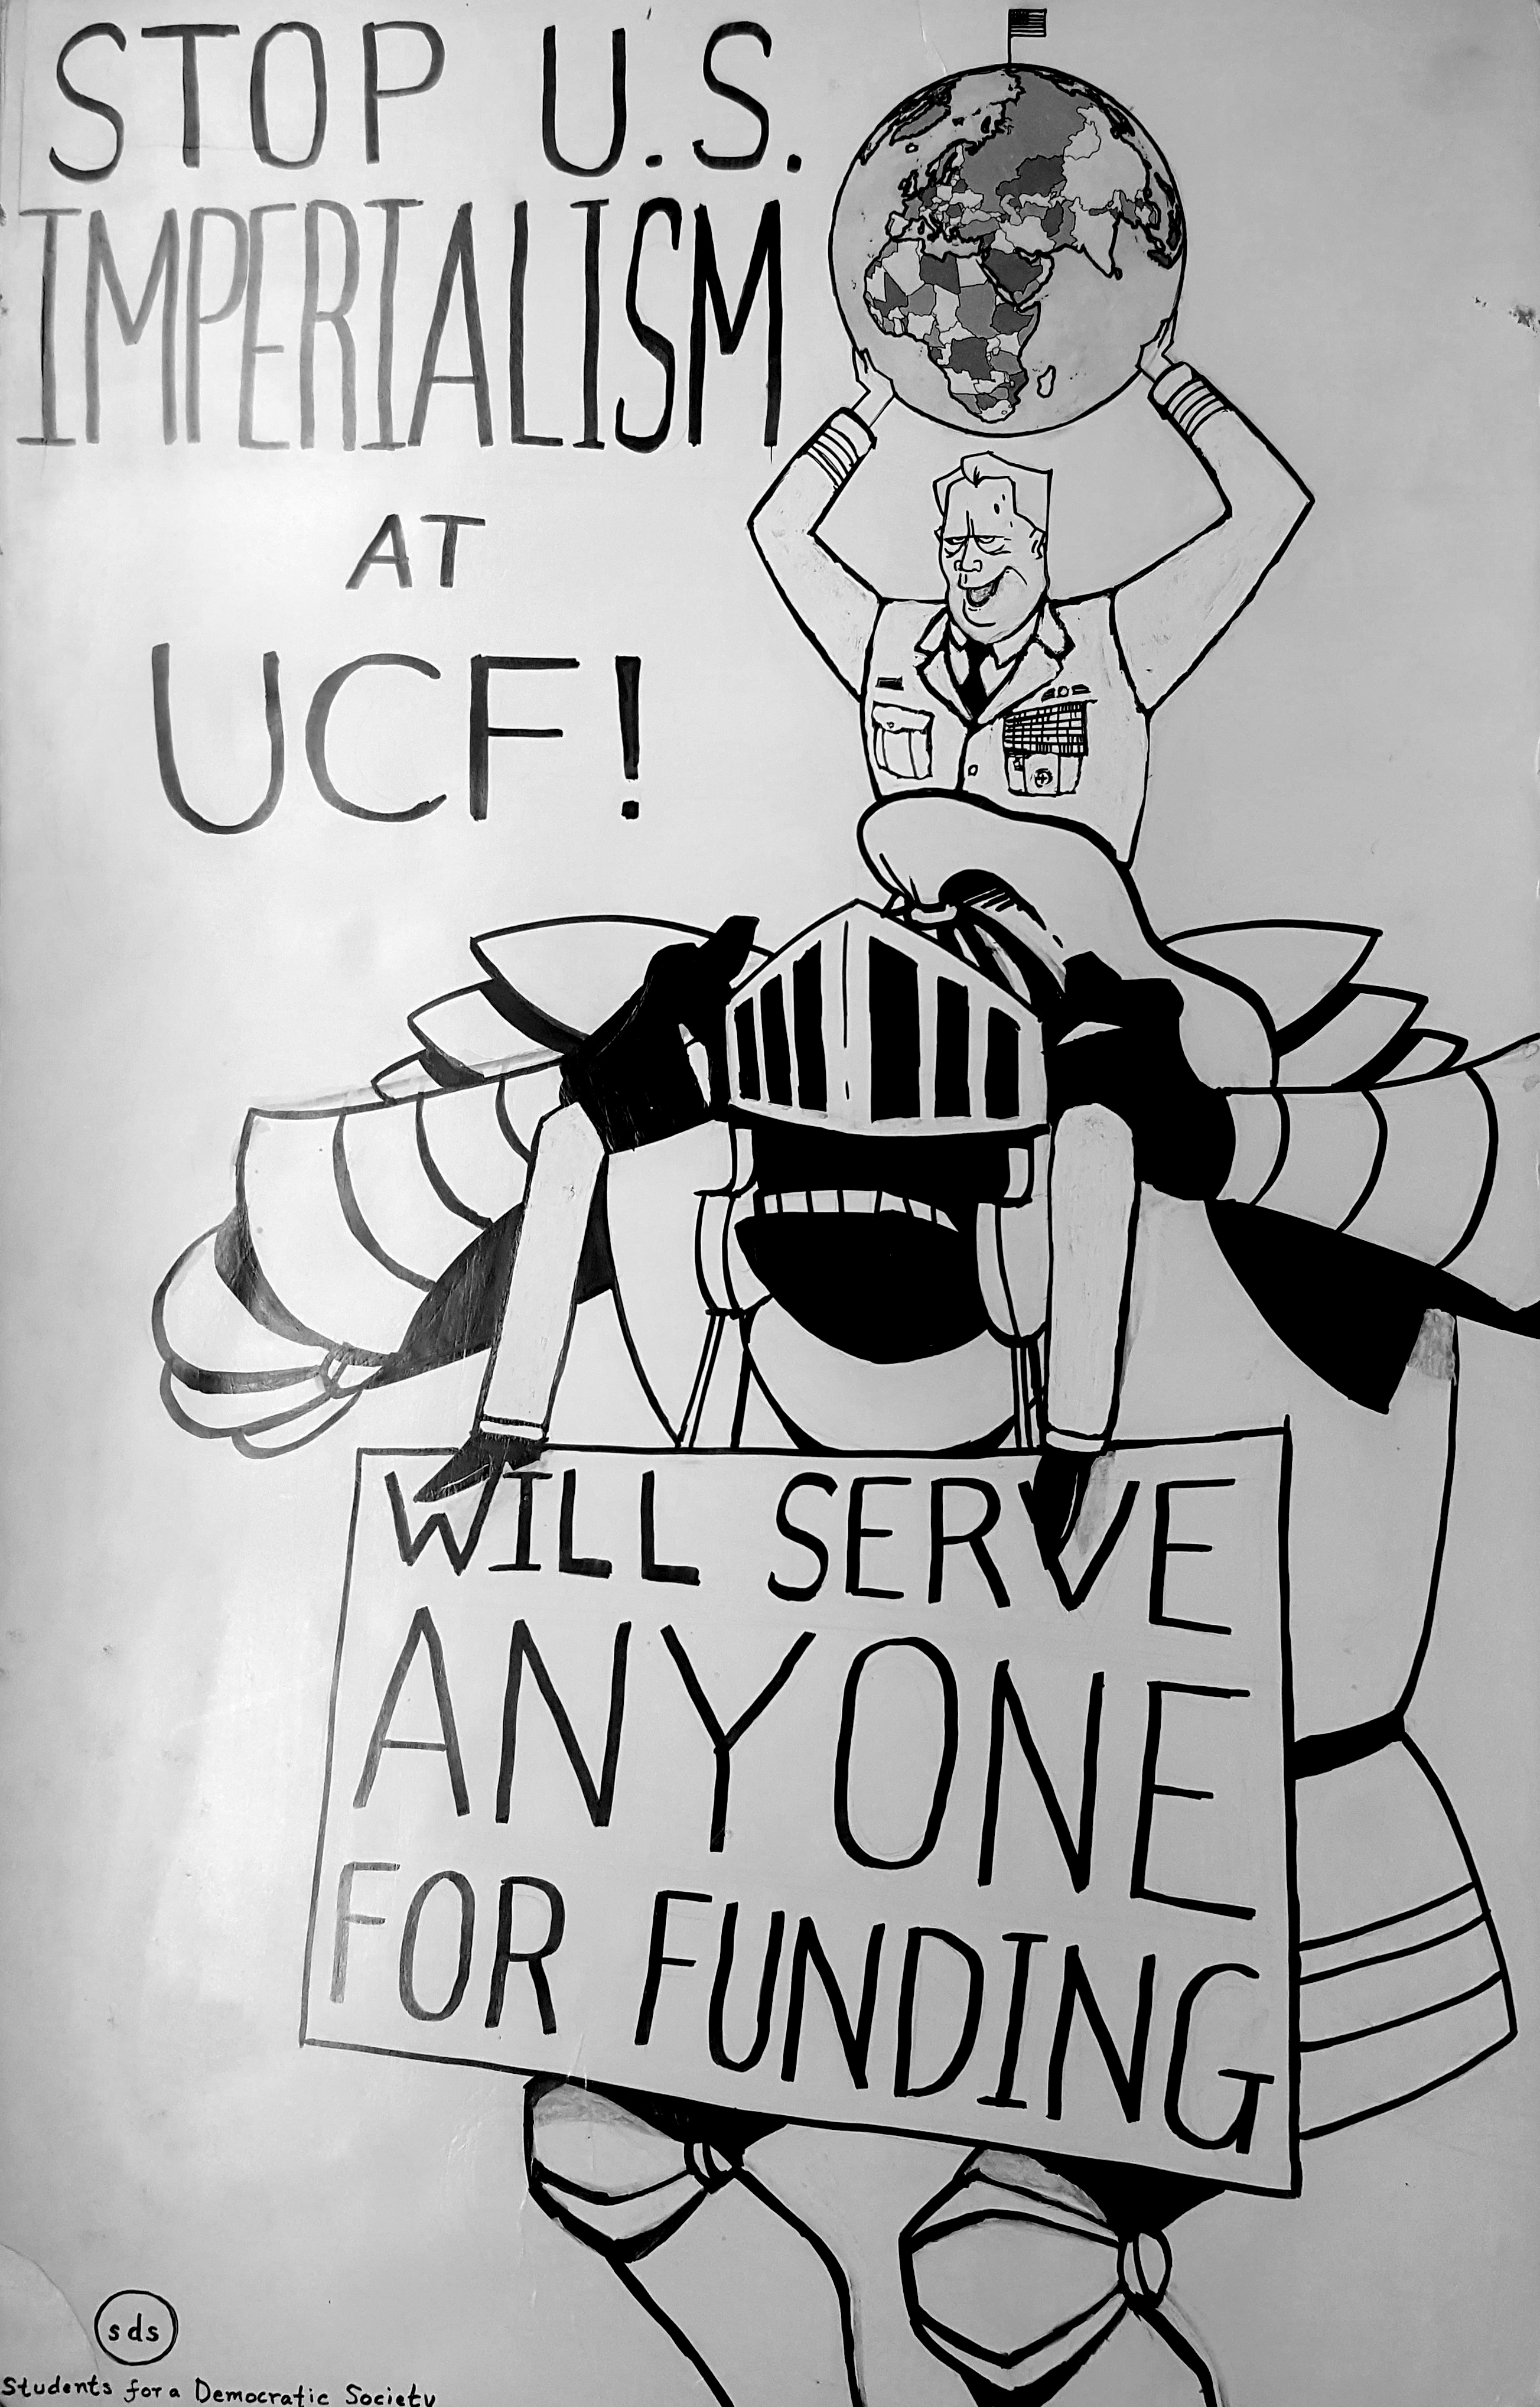 STOP U.S.
IMPERIALISM
AT
UCF!
WILL SERVE
ANYONE
FOR FUNDING
sds
Students for a Democratic Society